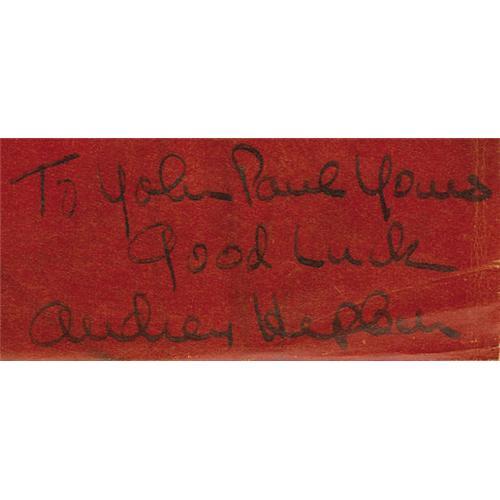 To John Paul
Good Luck
Audrey Hepburn